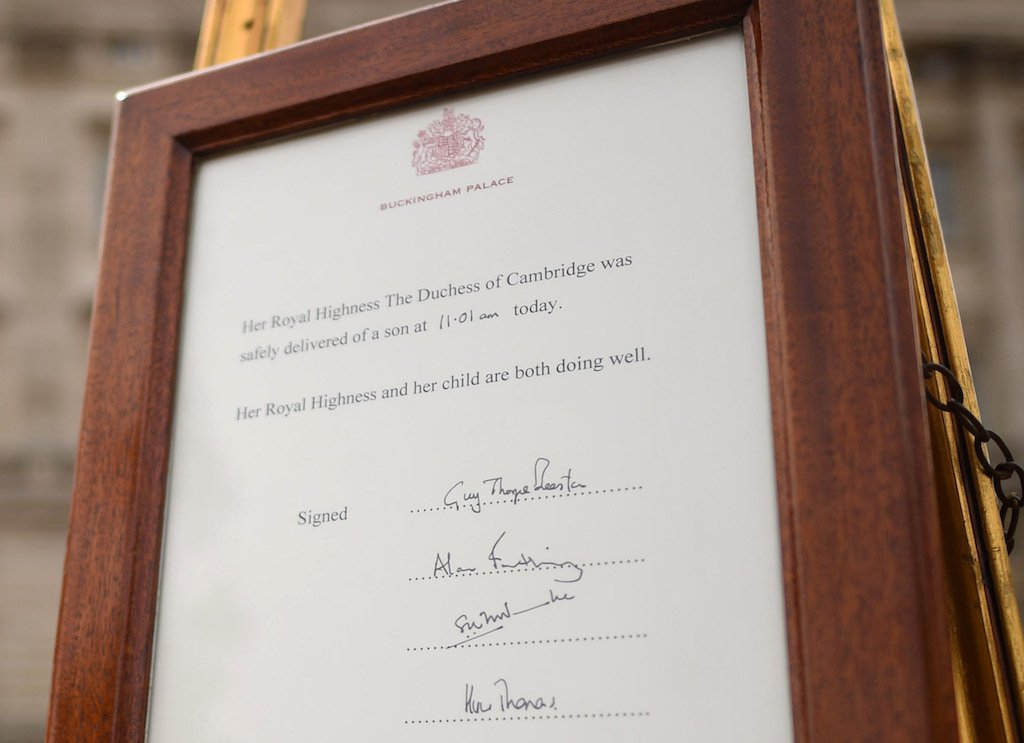 BUCKINGHAM PALACE
Her Royal Highness The Duchess of Cambridge was
safely delivered of a son at 11·01 am today.
Her Royal Highness and her child are both doing well.
Signed Guy Thorpe Beeston
Alan
Thomas